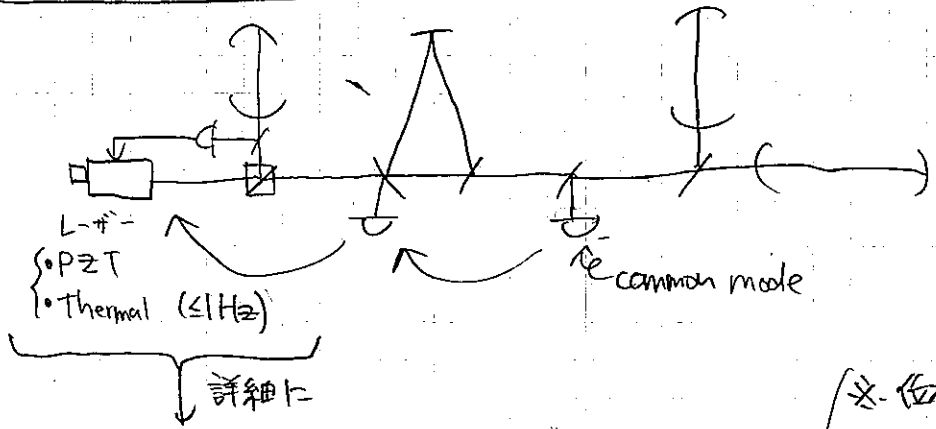 レーザー
・PZT
・Thermal (≤1Hz)
common mode
詳細に
※